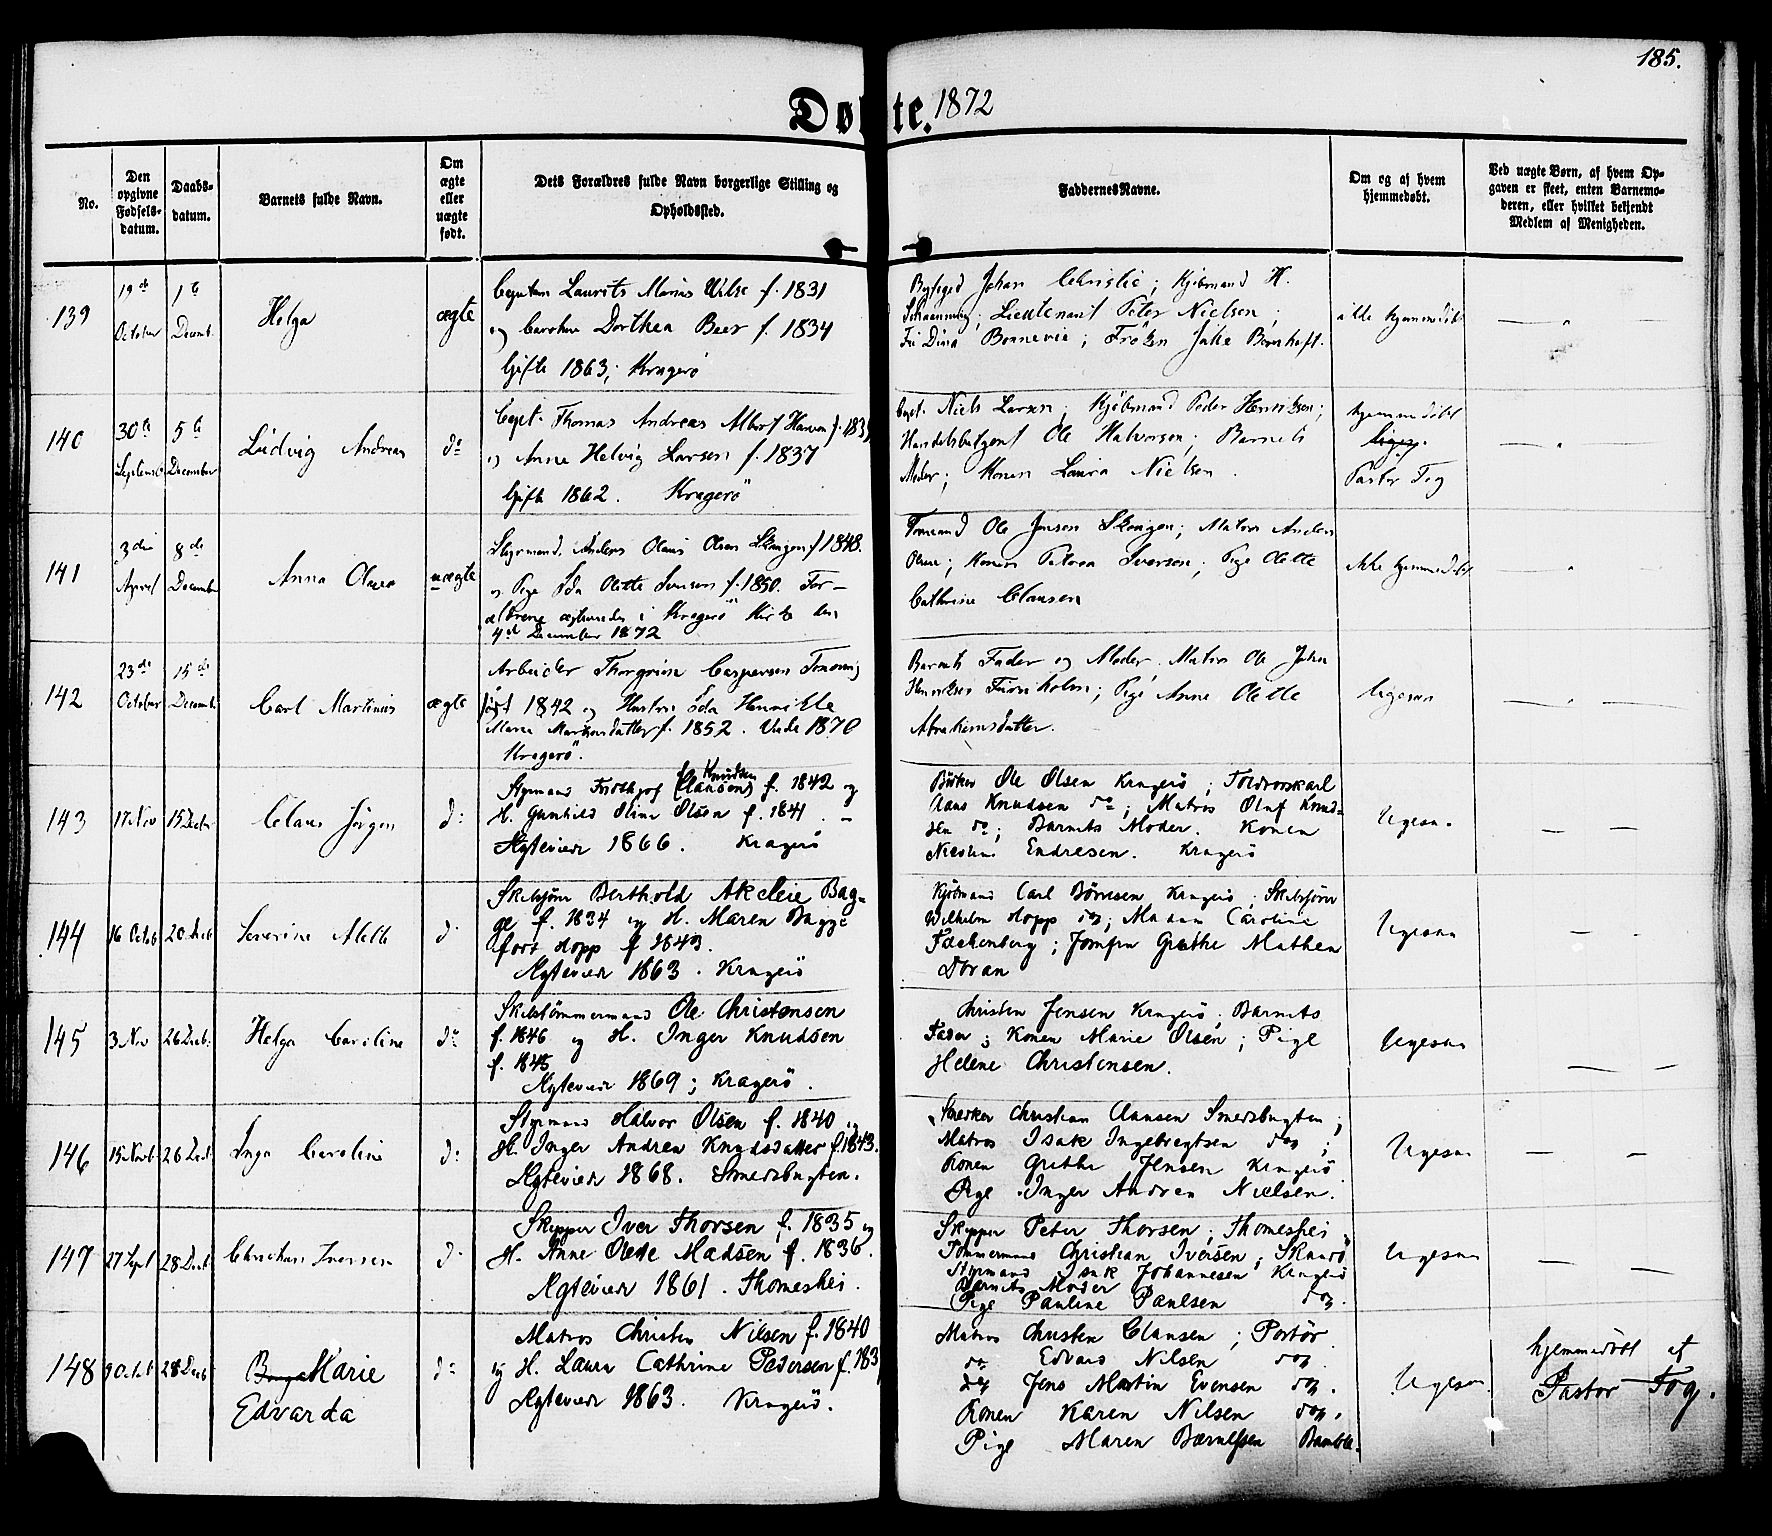 185.
Døbte. 1872
No.
Den opgivne Fødsels-datum.
Daabs-datum.
Barnets fulde Navn.
Om ægte eller uægte født.
Dets Forældres fulde Navn borgerlige Stilling og Opholdssted.
Faddernes Navne.
Om og af hvem hjemmedøbt.
Ved uægte Børn, af hvem Opgaven er skeet, enten Barnemoderen, eller hvilket bekjendt Medlem af Menigheden.
139
19de October
1te Decemb.
Helga
ægte
Capitain Laurits Marius Wilse f. 1831
og Caroline Dorthea Beer f. 1834
Gifte 1863; Kragerö
Byfoged Johan Christie; Kjöbmand H.
Lieutenant Peter Nielsen;
Dina Bonnevie; Fröken
ikke hjemmedöbt
140
30te Septembr
5te December
Ludvig Andreas
do
Capt. Thomas Andreas Albert Hansen f. 183
og Anne Helvig Larsen f. 1837
Gifte 1862. Kragerö
Capt. Niels Larsen; Kjöbmand Peder Henriksen;
Ole Halvorsen; Barnets
Moder; Konen Laura Nielsen
hjemmedöbt
Pastor Fog
141
3die April
8de December
Anna Olava
uægte
Styrmand Anders Olaus Olsen Skougen f 1848.
og Pige Ida Olette Iversen f. 1850. For-
ældrene ægteviede i Kragerö Kirke den
4de December 1872
Ole Jensen Skougen; Matros Anders
Olsen; Konen Petrea Iversen; Pige Olette
Cathrine Clausen
ikke hjemmedöbt
142
23de October
15de Decemb.
Carl Martinius
ægte
Arbeider Thorgrim Caspersen
född 1842 og Hustru Ida Henriette
Maria f. 1852. Viede 1870
Kragerö.
Barnets Fader og Moder. Matros Ole Johan
Henriksen Furuholm; Pige Anne Olette
Abrahamsdatter.
Ligesaa
143
17 Nov
15 Decbr
Claus Jörgen
do
Styrmand Fridthjof (Clausen) Knudsen f. 1842 og
H. Gunhild Oline Olsen f. 1841. -
Ægteviede 1866. Kragerö
Bödker Ole Olsen Kragerö; Toldroerskarl
Claus Knudsen do; Matros Oluf Knud-
sen do; Barnets Moder. Konen
Nicoline Endresen. Kragerö
Ligesaa
144
16 Octob
20 Decb
Severine Mette
do
Skibsförer Berthold Akeleie Bag-
ge f. 1834 og H. Maren Bagge
född Hopp f 1843.
Ægteviede 1863. Kragerö
Kjöbmand Carl Börresen Kragerö; Skibsförer
Wilhelm Hopp do; Madam Caroline
Falkenberg; Jomfru Grethe Mathea
Doran
Ligesaa
145
3 Nov
26 Decb.
Helga Caroline
do
Skibstömmermand Ole Christensen
f. 1846 og H. Inger Knudsen
f. 1845
Ægteviede 1869; Kragerö.
Christen Jensen Kragerö; Barnets
Fader; Konen Marie Olsen; Pige
Helene Christensen.
Ligesaa
146
15 Novb
26 Decb
Inga Caroline
do
Styrmand Halvor Olsen f. 1840 og
H. Inger Andrea Knudsdatter f. 1843.
Ægteviede 1868. Smedsbugten.
Snedker Christian Clausen Smedsbugten;
Matros Isak Ingebregtsen do;
Konen Grethe Jensen Kragerö
Pige Inger Andrea Nielsen.
Ligesaa
147
27 Sept
28 Decb
Christian Iversen
do
Skipper Iver Thorsen f. 1835 og
H. Anne Olette Madsen f. 1836.
Ægteviede 1861. Thomeshei.
Skipper Peter Thorsen; Thomeshei
Tömmermand Christian Iversen; Skaarö
Styrmand Isak Johannesen Kragerö
Barnets Moder
Pige Pauline Paulsen do.
Ligesaa
148
9 Octob
28 Decb
Marie
Edvarda
do
Matros Christen Nilsen f. 1840
og H. Laura Cathrine Pedersen f. 183
Ægteviede 1863. Kragerö.
Matros Christen Clausen; Portör.
do Edvard Nilsen do.
do Jens Martin Evensen do.
Konen Karen Nilsen do.
Pige Maren Bamble.
Ligesaa.
hjemmedöbt af
Pastor Fog.